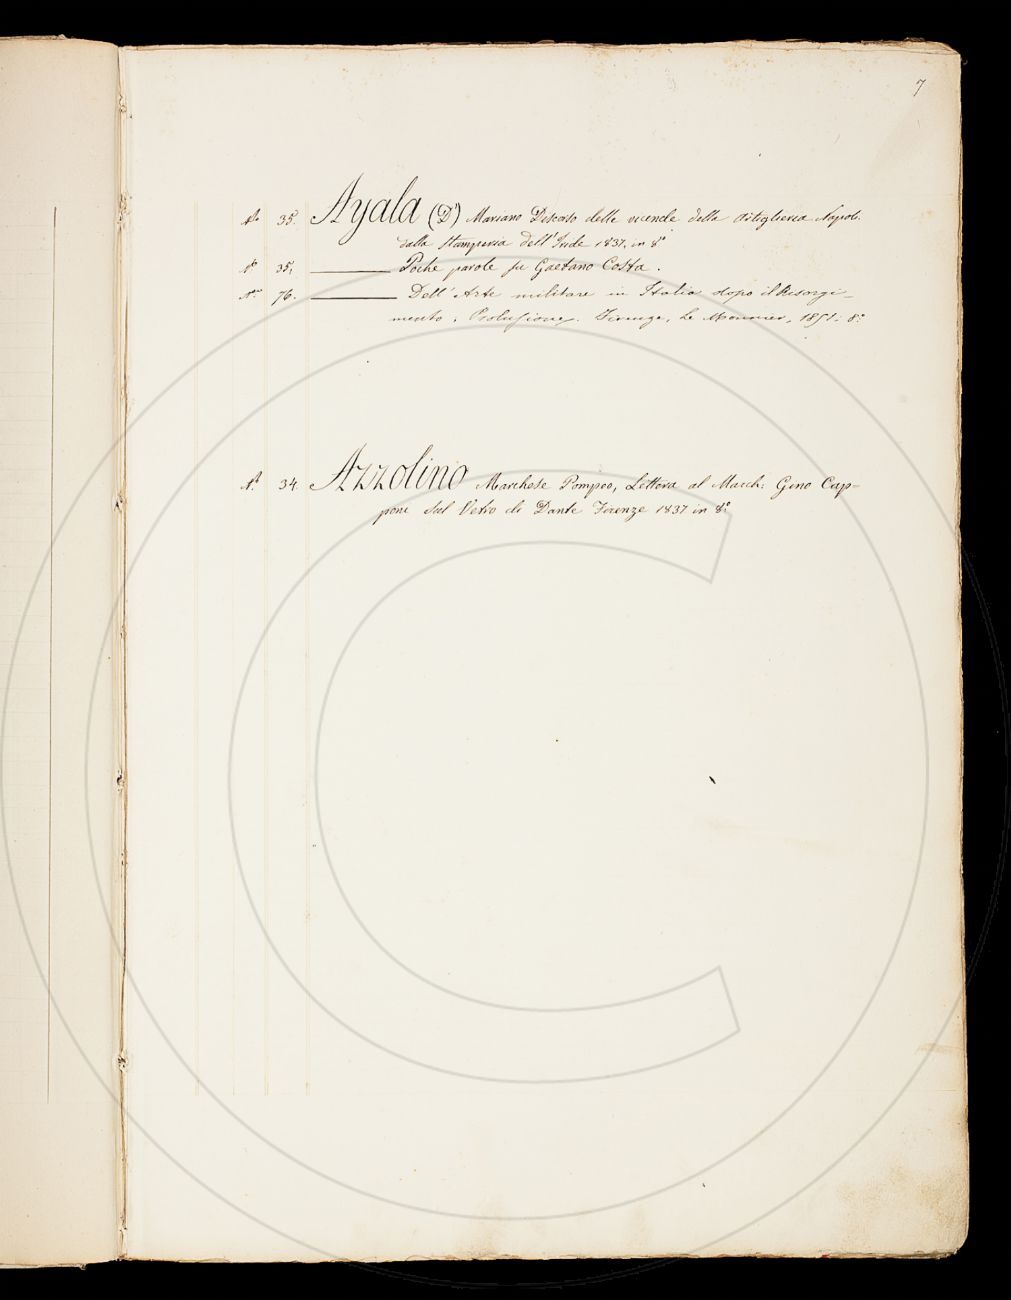 7
N.º 35. Ayala (D') Mariano Discorso delle vicende della Artiglieria Napol.
dalla stamperia dell'Iride 1837, in 8º
N.º 35. ——— Poche parole su Gaetano Costa.
N.º 76. ——— Dell'Arte militare in Italia dopo il Risorgi-
mento. Prolusione. Firenze, Le Monnier, 1851. 8.º
N.º 34. Azzolino Marchese Pompeo, Lettera al March: Gino Cap-
poni sul Vetro di Dante Firenze 1837 in 8.º